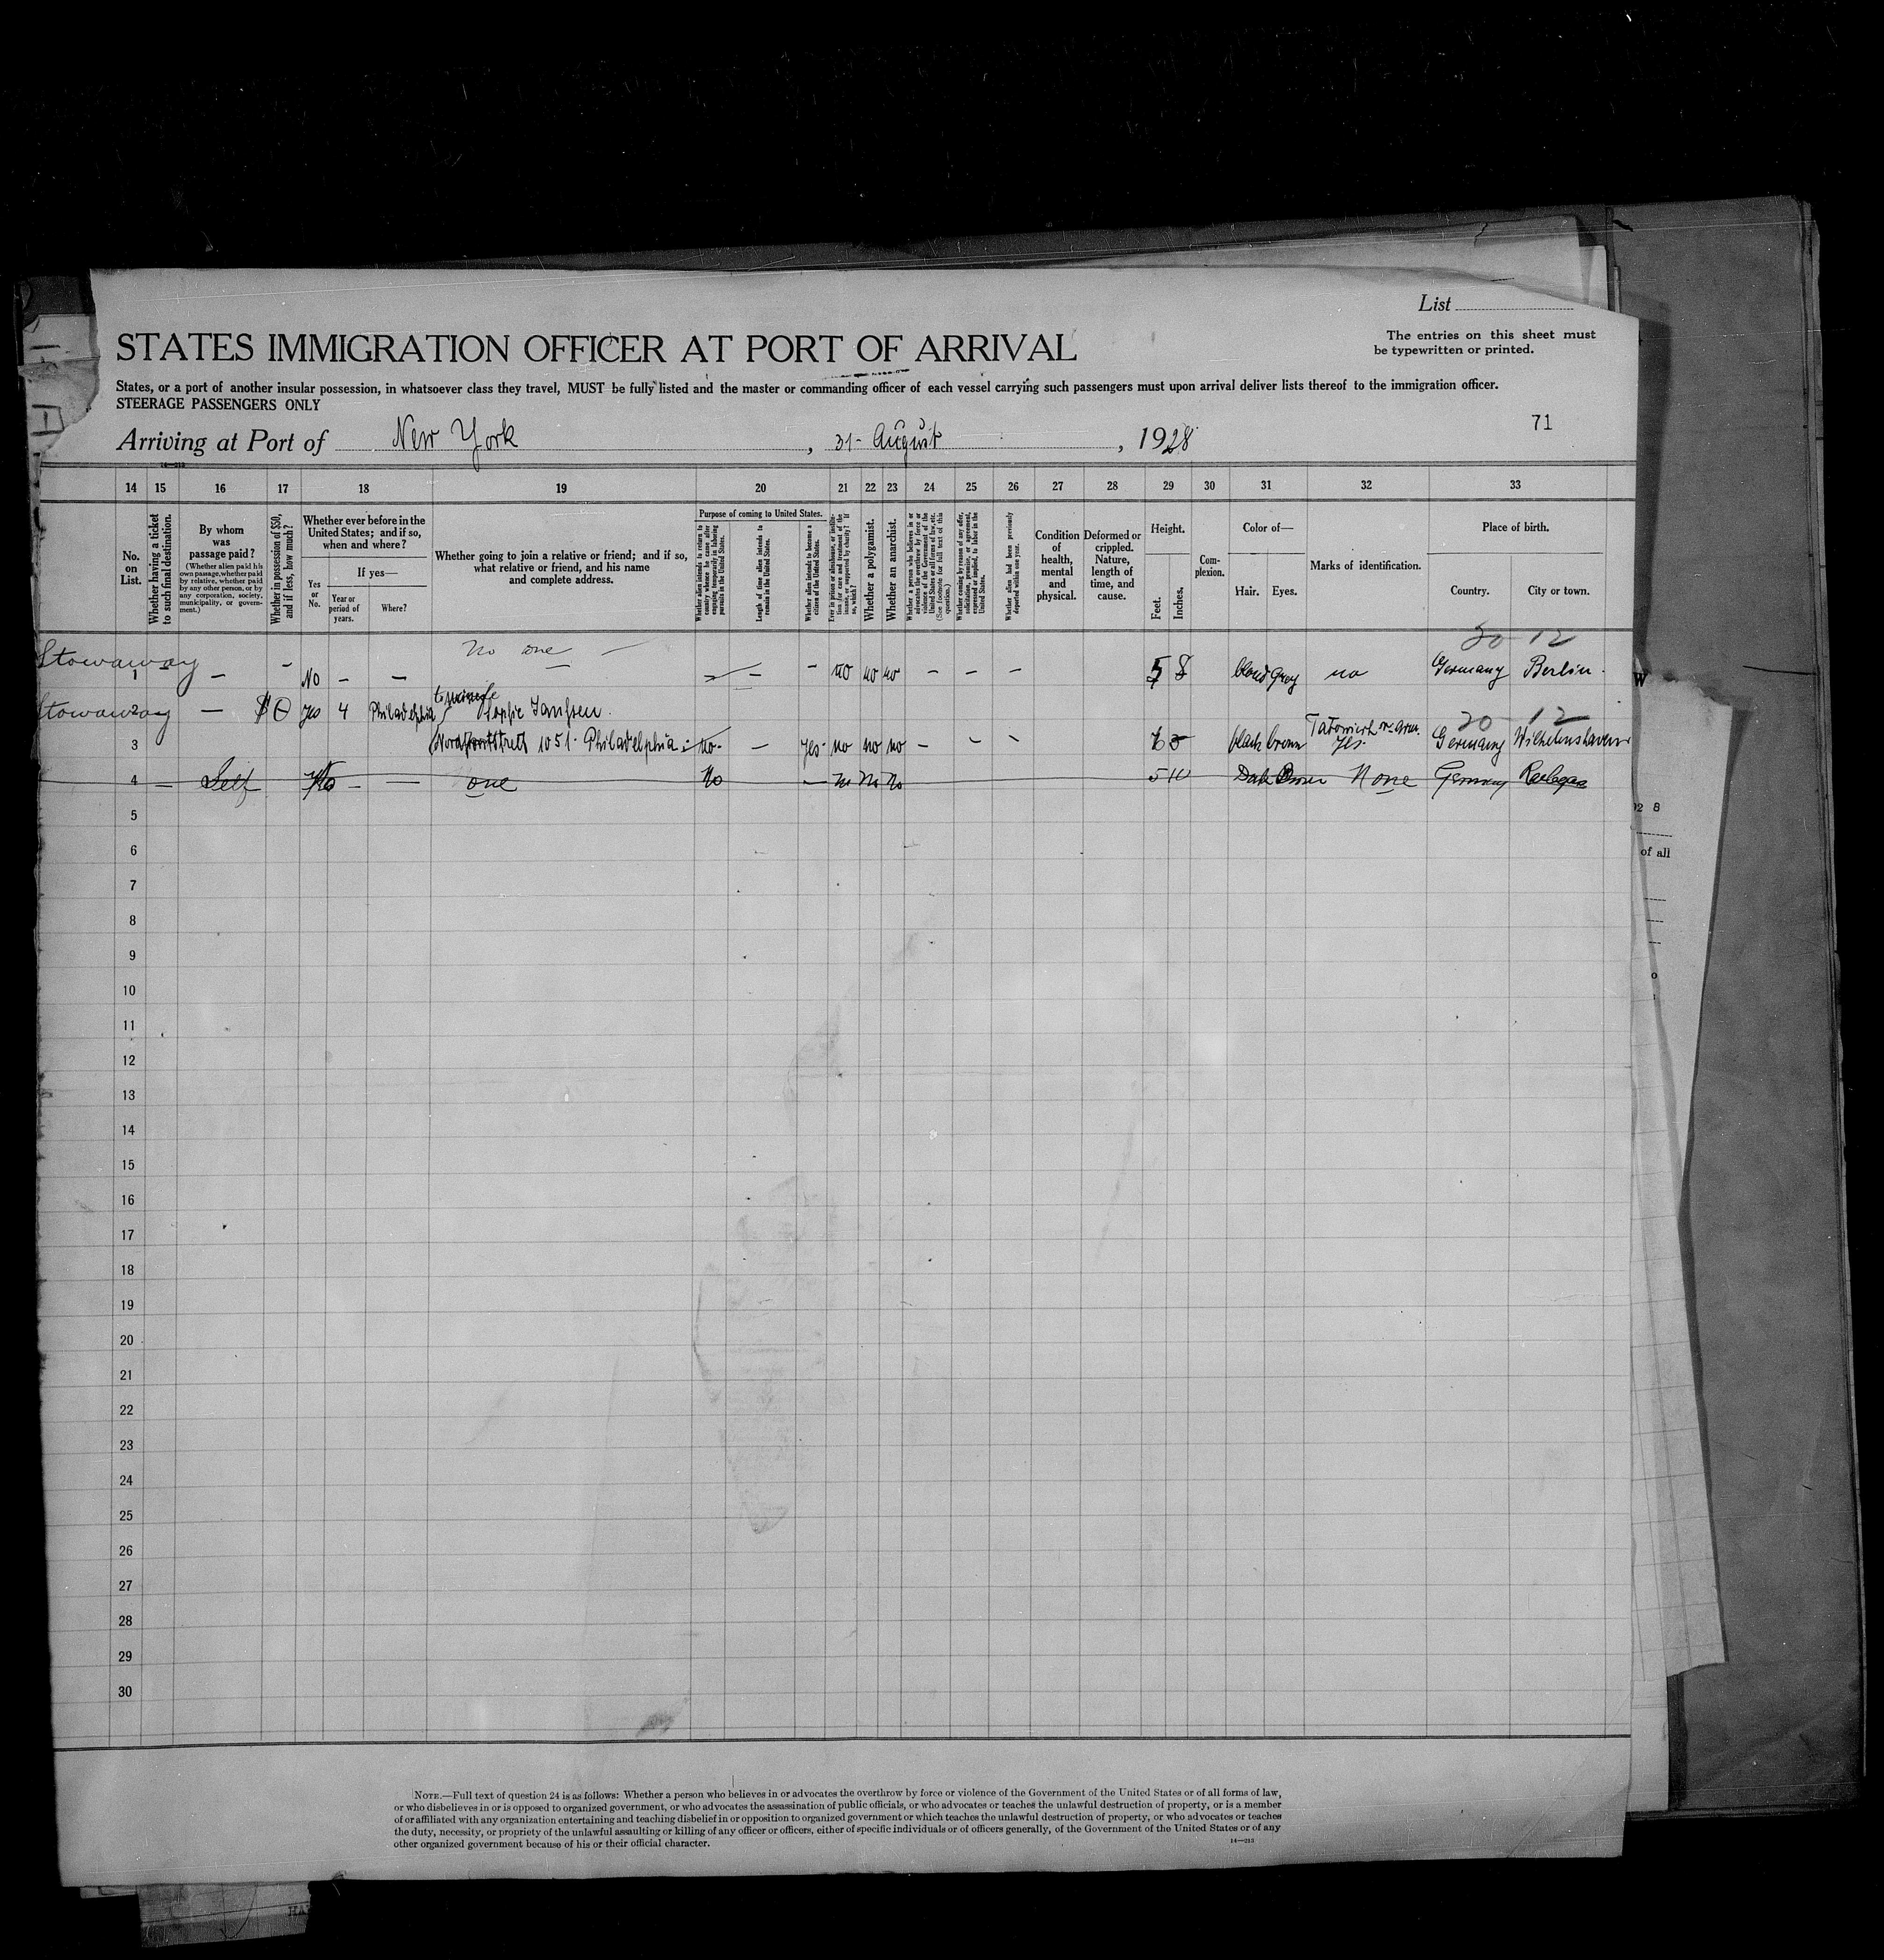 List
The entries on this sheet must
be typewritten or printed.
STATES IMMIGRATION OFFICER AT PORT OF ARRIVAL
States, or a port of another insular possession, in whatsoever class they travel, MUST be fully listed and the master or commanding officer of each vessel carrying such passengers must upon arrival deliver lists thereof to the immigration officer.
STEERAGE PASSENGERS ONLY
71
Arriving at Port of New York, 31- August, 1928
14—213
14 15 16 17 18 19 20 21 22 23 24 25 26 27 28 29 30 31 32 33
No.
on
List.
Whether having a ticket
to such final destination.
By whom
was
passage paid?
(Whether alien paid his
own passage, whether paid
by relative, whether paid
by any other person, or by
any corporation, society,
municipality, or govern-
ment.)
Whether in possession of $50,
and if less, how much?
Whether ever before in the
United States; and if so,
when and where?
If yes—
Yes
or
No.
Year or
period of
years.
Where?
Whether going to join a relative or friend; and if so,
what relative or friend, and his name
and complete address.
Purpose of coming to United States.
Whether alien intends to return to
country whence he came after
engaging temporarily in laboring
pursuits in the United States.
Length of time alien intends to
remain in the United States.
Whether alien intends to become a
citizen of the United States.
Ever in prison or almshouse, or institu-
tion for care and treatment of the
insane, or supported by charity? If
so, which?
Whether a polygamist.
Whether an anarchist.
Whether a person who believes in or
advocates the overthrow by force or
violence of the Government of the
United States or all forms of law, etc.
(See footnote for full text of this
question.)
Whether coming by reason of any offer,
solicitation, promise, or agreement,
expressed or implied, to labor in the
United States.
Whether alien had been previously
deported within one year.
Condition
of
health,
mental
and
physical.
Deformed or
crippled.
Nature,
length of
time, and
cause.
Height.
Feet.
Inches.
Com-
plexion.
Color of—
Hair. Eyes.
Marks of identification.
Place of birth.
Country. City or town.
No one — 20 12
Stowaway 1 — — No — — — — no no no — — — 5 8 blond grey no Germany Berlin.
Stowaway 2 — $0 yes 4 Philadelphia Sophie Janssen. 20 12
3 1051 Philadelphia no — yes no no no — — — black brown yes. Germany Wilhelmshaven
4 — Self No — — one No — no no no 5 10 Dark None Germany
5
6
7
8
9
10
11
12
13
14
15
16
17
18
19
20
21
22
23
24
25
26
27
28
29
30
NOTE.—Full text of question 24 is as follows: Whether a person who believes in or advocates the overthrow by force or violence of the Government of the United States or of all forms of law,
or who disbelieves in or is opposed to organized government, or who advocates the assassination of public officials, or who advocates or teaches the unlawful destruction of property, or is a member
of or affiliated with any organization entertaining and teaching disbelief in or opposition to organized government or which teaches the unlawful destruction of property, or who advocates or teaches
the duty, necessity, or propriety of the unlawful assaulting or killing of any officer or officers, either of specific individuals or of officers generally, of the Government of the United States or of any
other organized government because of his or their official character.
14—213
of all